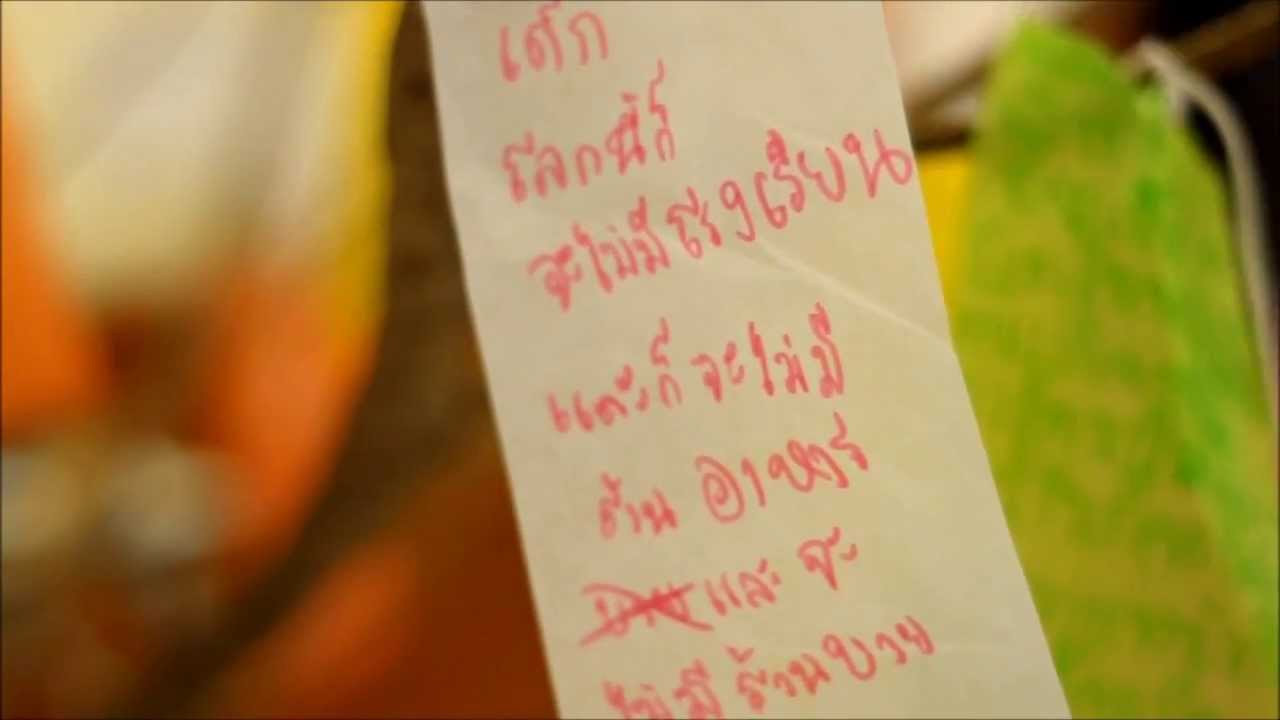 เด็ก
โลกนี้ก็
จะไม่มีโรงเรียน
และก็จะไม่มี
ร้าน อาหาร
และ จะ
ไม่มี ร้านขาย